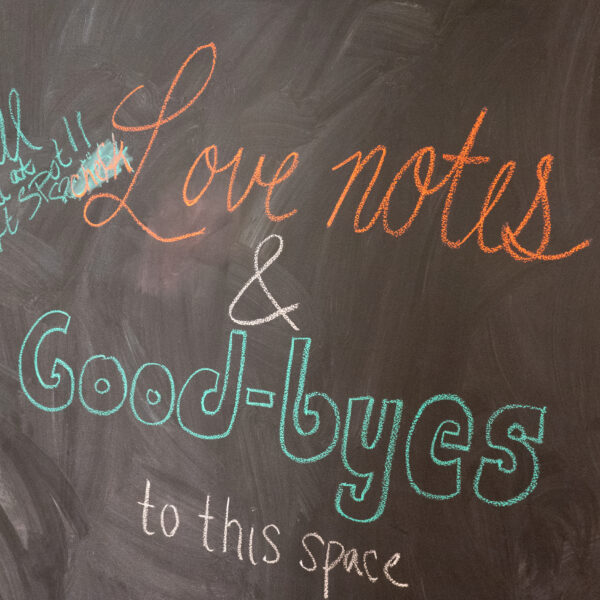 Love notes
&
Good-byes
to this space
spot!!